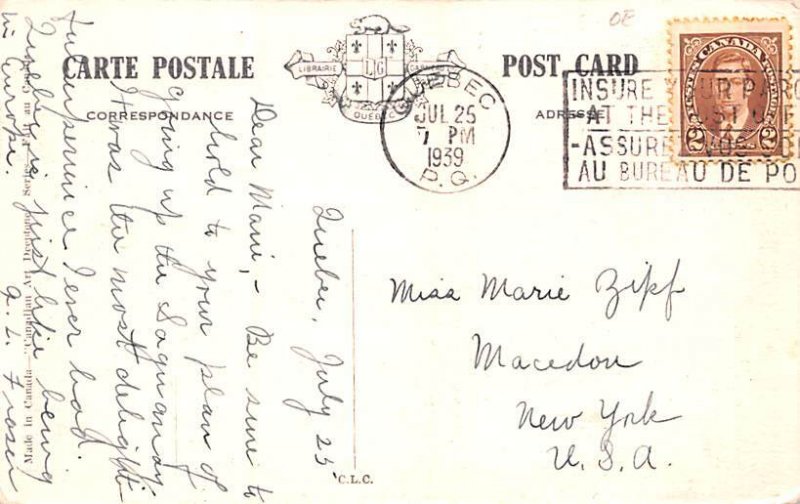 CARTE POSTALE
CORRESPONDANCE
LIBRAIRIE GARNEAU
LG
QUÉBEC
POST CARD
ADRESSE
OE
QUEBEC
JUL 25
7 PM
1939
P.Q.
INSURE YOUR PARC
AT THE POST OFF
-ASSUREZ VOS COL
AU BUREAU DE PO
CANADA
2 2
Quebec, July 25
Dear Marie, - Be sure to
hold to your plan of
going up the Saguenay
It was the most delight
ful experience I ever had.
Quebec is just like being
in Europe.
A. L. Fraser
Miss Marie Zipf
Macedon
New York
U.S.A.
C.L.C.
Made in Canada—Canadian by